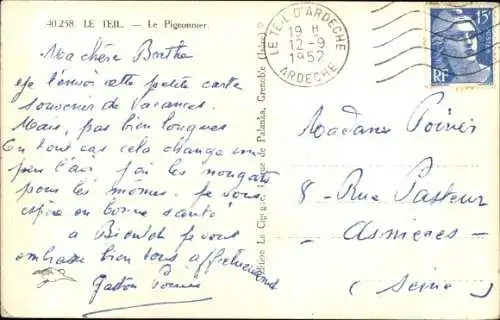 40.258. LE TEIL. — Le Pigeonnier.
Ma chère Berthe
je t'envoi cette petite carte
souvenir de vacances.
Mais, pas bien longues
En tout cas cela change un
peu l'air j'ai les nougats
pour les momes. je vous
espère en bonne santé
a Bientot je vous
embrasse bien tous affectueusement
Gaston
Edition La Cigogne, Grenoble (Isère)
LE TEIL D'ARDECHE
19 H
12-9
1952
ARDECHE
15F
RF
Madame Poirier
8 - Rue Pasteur
- Asnieres -
(Seine)